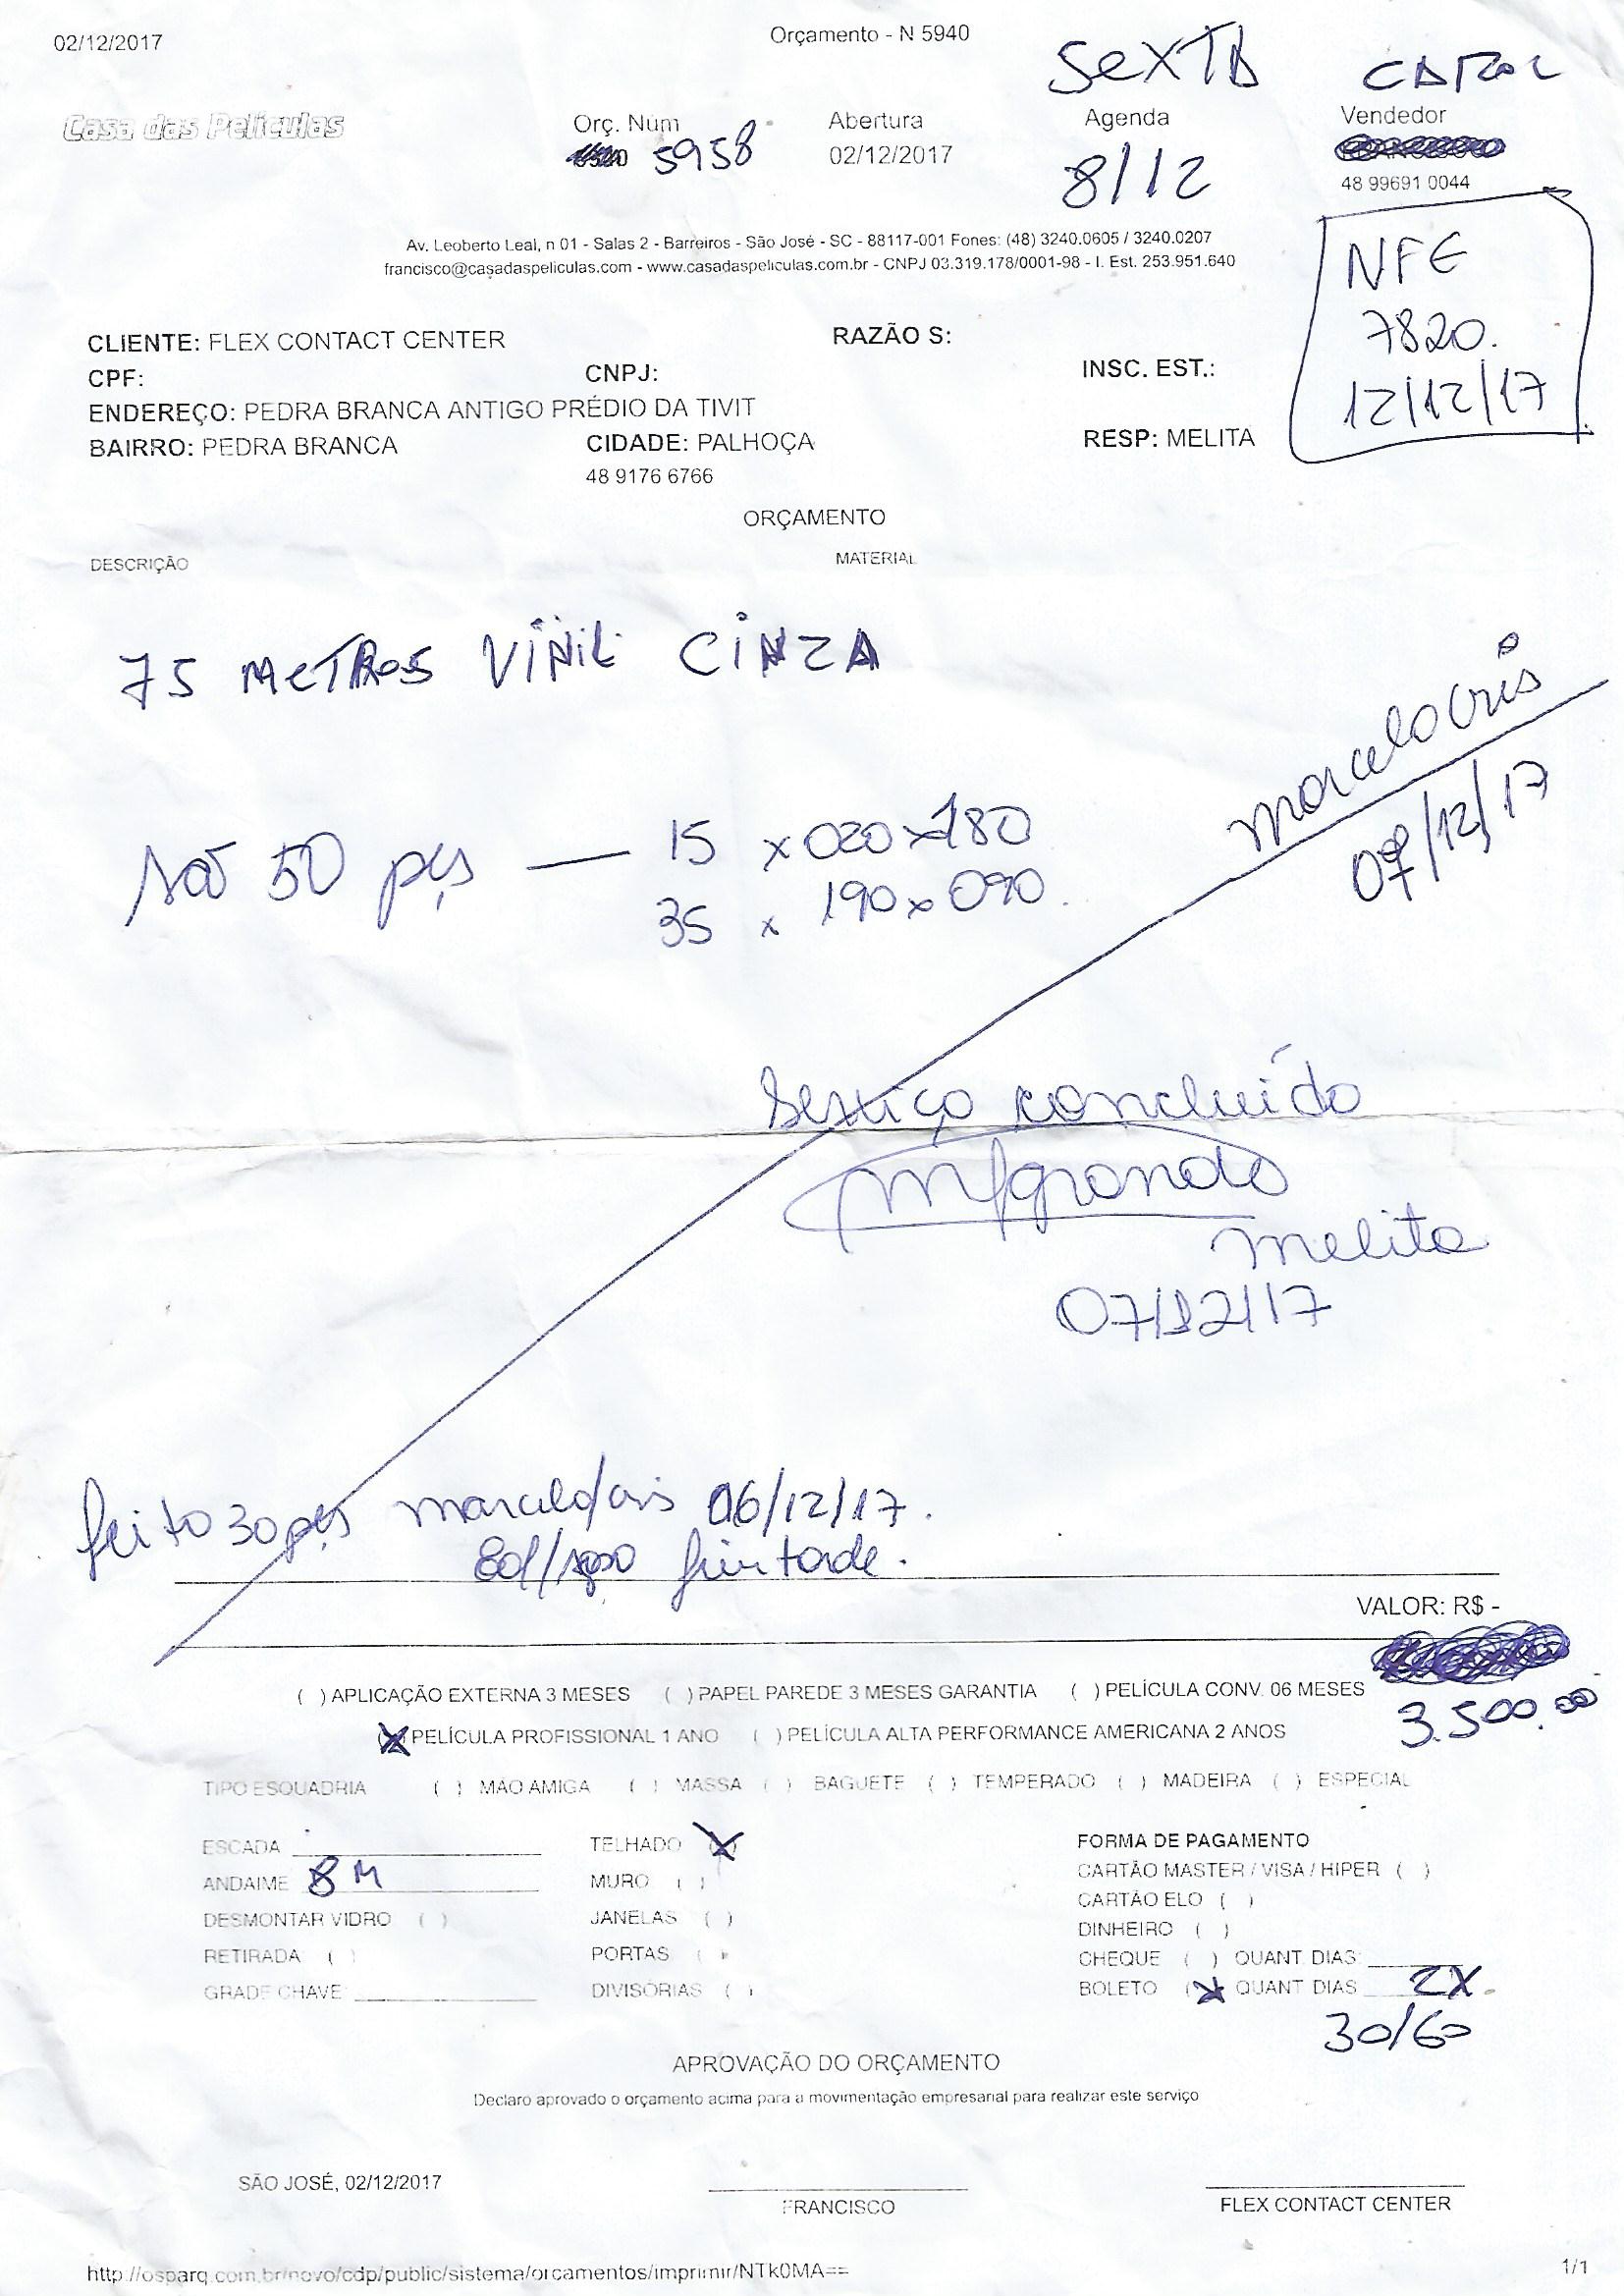 02/12/2017 Orçamento - N 5940
SEXTA CAROL
Casa das Películas Orç. Num Abertura Agenda Vendedor
5958 02/12/2017 8/12
48 99691 0044
Av. Leoberto Leal, n 01 - Salas 2 - Barreiros - São José - SC - 88117-001 Fones: (48) 3240.0605 / 3240.0207
francisco@casadaspeliculas.com - www.casadaspeliculas.com.br - CNPJ 03.319.178/0001-98 - I. Est. 253.951.640
NFE
7820.
12/12/17
CLIENTE: FLEX CONTACT CENTER RAZÃO S:
CPF: CNPJ: INSC. EST.:
ENDEREÇO: PEDRA BRANCA ANTIGO PRÉDIO DA TIVIT
BAIRRO: PEDRA BRANCA CIDADE: PALHOÇA RESP: MELITA
48 9176 6766
ORÇAMENTO
DESCRIÇÃO MATERIAL
75 METROS VINIL CINZA
marcelo cris
07/12/17
são 50 pçs — 15 x 020 x 180
35 x 190 x 090.
Serviço concluído
melita
07/12/17
feito 30 pçs marcelo/cris 06/12/17.
VALOR: R$ -
( ) APLICAÇÃO EXTERNA 3 MESES ( ) PAPEL PAREDE 3 MESES GARANTIA ( ) PELÍCULA CONV. 06 MESES
3.500.00
(X) PELÍCULA PROFISSIONAL 1 ANO ( ) PELÍCULA ALTA PERFORMANCE AMERICANA 2 ANOS
TIPO ESQUADRIA ( ) MAO AMIGA ( ) MASSA ( ) BAGUETE ( ) TEMPERADO ( ) MADEIRA ( ) ESPECIAL
ESCADA TELHADO (X) FORMA DE PAGAMENTO
ANDAIME 8 M MURO ( ) CARTÃO MASTER / VISA / HIPER ( )
CARTÃO ELO ( )
DESMONTAR VIDRO ( ) JANELAS ( ) DINHEIRO ( )
RETIRADA ( ) PORTAS ( ) CHEQUE ( ) QUANT DIAS:
GRADE CHAVE DIVISÓRIAS ( ) BOLETO (X) QUANT DIAS 2X.
30/60
APROVAÇÃO DO ORÇAMENTO
Declaro aprovado o orçamento acima para a movimentação empresarial para realizar este serviço
SÃO JOSÉ, 02/12/2017
FRANCISCO FLEX CONTACT CENTER
http://osparq.com.br/novo/cdp/public/sistema/orcamentos/imprimir/NTk0MA== 1/1